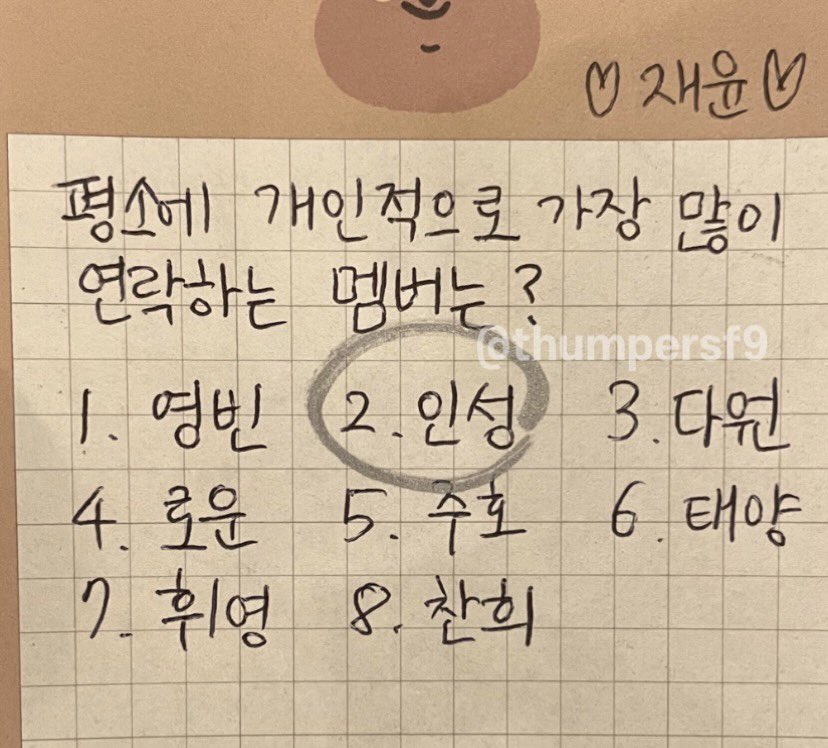 ♡재윤♡
평소에 개인적으로 가장 많이
연락하는 멤버는?
@thumpersf9
1. 영빈 2. 인성 3. 다원
4. 로운 5. 주호 6. 태양
7. 휘영 8. 찬희